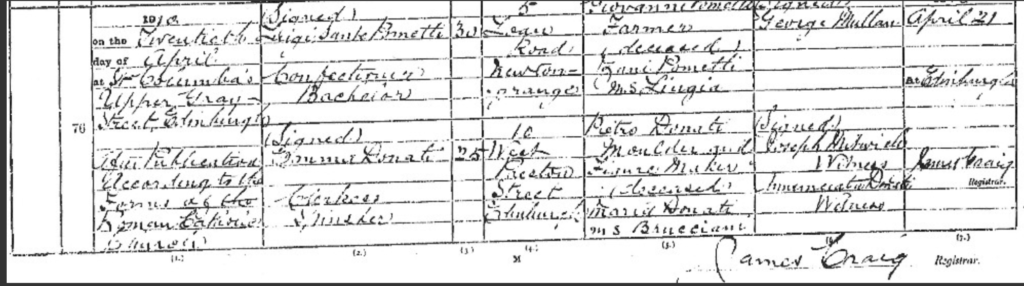 1910 (Signed) 5 Giovanni Pometti (Signed)
on the Twentieth Luigi Sante Pometti 30 Lean Farmer George Mullan April 21
day of April Road (deceased)
at St Columba's Confectioner Newton= Pometti at Edinburgh
Upper Gray- Bachelor grange M.S.
Street, Edinburgh
76 (Signed) 10 Pietro Donati (Signed)
After Publication Emma Donati 25 West Moulder and Joseph
According to the Preston Figure Maker Witness James Craig
Forms of the Clerkess Street (deceased) Immaculata Donati Registrar.
Roman Catholic Spinster Edinburgh Maria Donati Witness
Church M.S. Brucciani
(1.) (2.) (3.) (4.) (5.) (6.) (7.)
M James Craig Registrar.